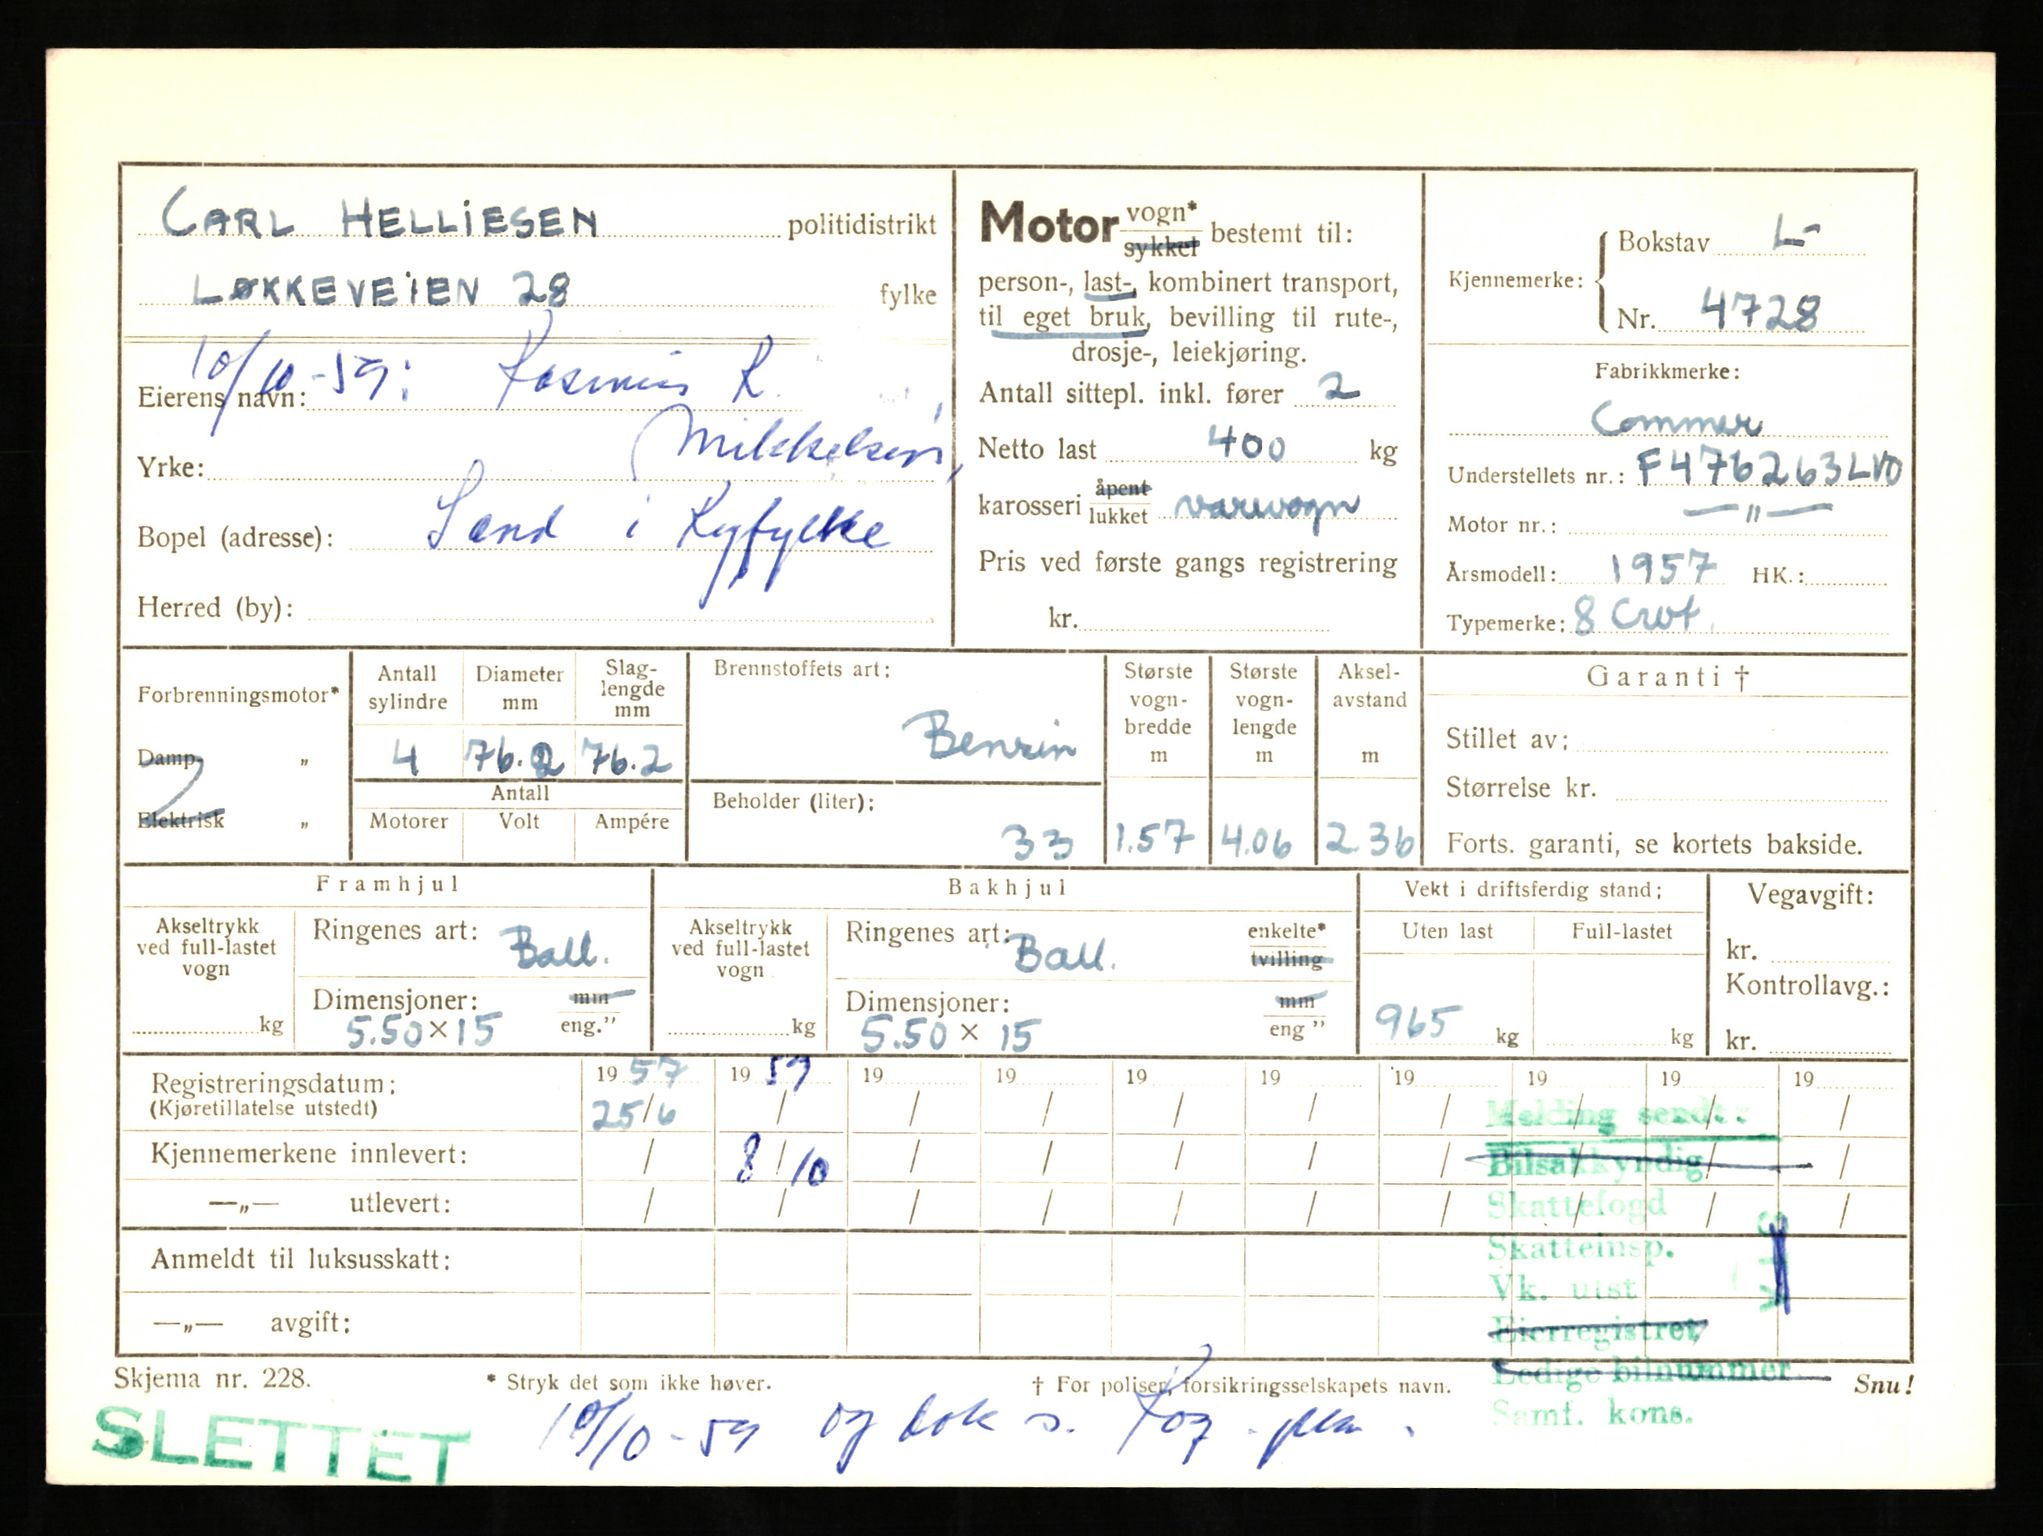 CARL HELLIESEN politidistrikt
LØKKEVEIEN 28 fylke
10/10-59: Rasmus R.
Eierens navn:
Mikkelsen,
Yrke:
Sand i Ryfylke
Bopel (adresse):
Herred (by):
Motor vogn* sykkel bestemt til:
person-, last-, kombinert transport,
til eget bruk, bevilling til rute-,
drosje-, leiekjøring.
Antall sittepl. inkl. fører 2
Netto last 400 kg
karosseri åpent lukket varevogn
Pris ved første gangs registrering
kr.
Kjennemerke: Bokstav L-
Nr. 4728
Fabrikkmerke:
Commer
Understellets nr.: F476263LVO
Motor nr.: —"—
Årsmodell: 1957 HK.:
Typemerke: 8 Cwt.
Forbrenningsmotor*
Damp- „
Elektrisk „
Antall sylindre
Diameter mm
Slag-
lengde
mm
4 76.2 76.2
Antall
Motorer Volt Ampére
Brennstoffets art:
Benzin
Beholder (liter):
33
Største
vogn-
bredde
m
1.57
Største
vogn-
lengde
m
4.06
Aksel-
avstand
m
2.36
Garanti †
Stillet av:
Størrelse kr.
Forts. garanti, se kortets bakside.
Framhjul
Akseltrykk
ved full-lastet
vogn
kg
Ringenes art: Ball.
Dimensjoner: mm
5.50 × 15 eng."
Bakhjul
Akseltrykk
ved full-lastet
vogn
kg
Ringenes art: Ball. enkelte*
tvilling
Dimensjoner: mm
5.50 × 15 eng "
Vekt i driftsferdig stand:
Uten last Full-lastet
965 kg kg
Vegavgift:
kr.
Kontrollavg.:
kr.
Registreringsdatum: 19 57 19 59 19 19 19 19 19 19 19 19
(Kjøretillatelse utstedt) 25/6 / / / / / / / / /
Kjennemerkene innlevert: / 8/10 / / / / / / / /
—„— utlevert: / / / / / / / / / /
Anmeldt til luksusskatt:
—„— avgift:
Melding sendt:
Bilsakkyndig
Skattefogd
Skatteinsp.
Vk. utst
Eierregistret
Ledige bilnummer
Samf. kons.
Skjema nr. 228. * Stryk det som ikke høver. † For poliser, forsikringsselskapets navn. Snu!
SLETTET
10/10-59 og bok s. Rog.